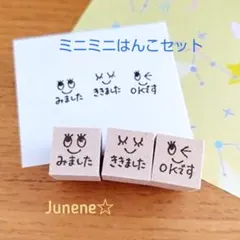 ミニミニはんこセット
みました
ききました
OKです
みました
ききました
OKです
Junene☆